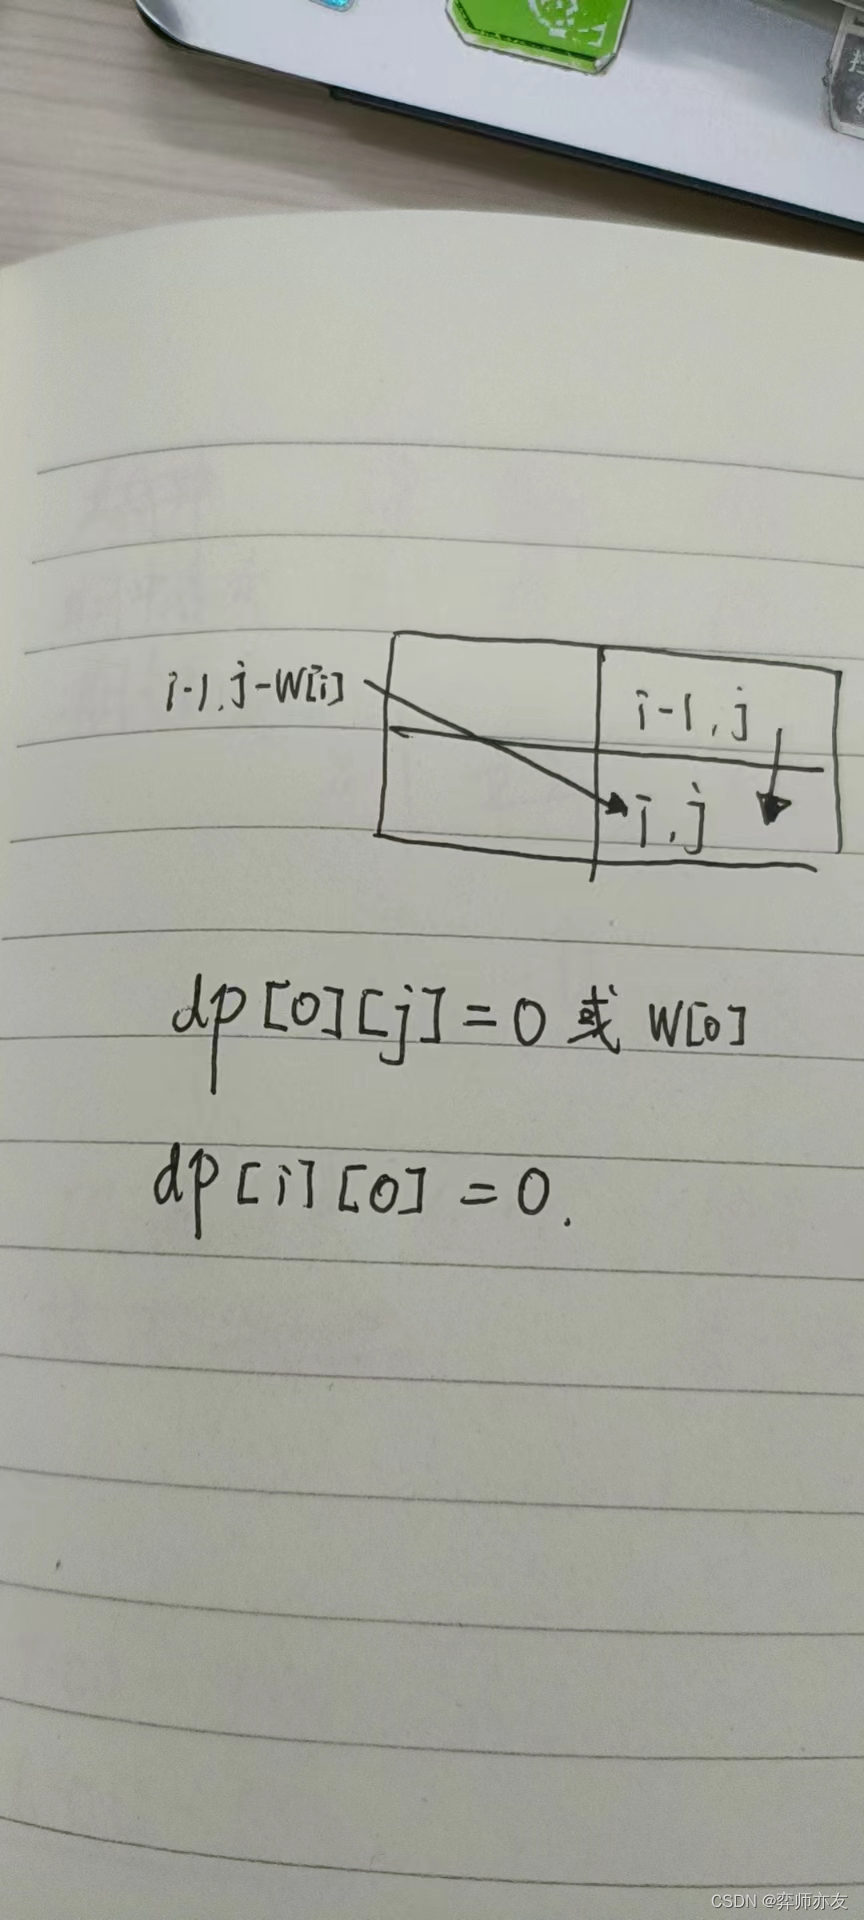 i-1,j-W[i]
i-1,j
i,j
dp[0][j]=0或 W[0]
dp[i][0]=0.
CSDN @弈师亦友